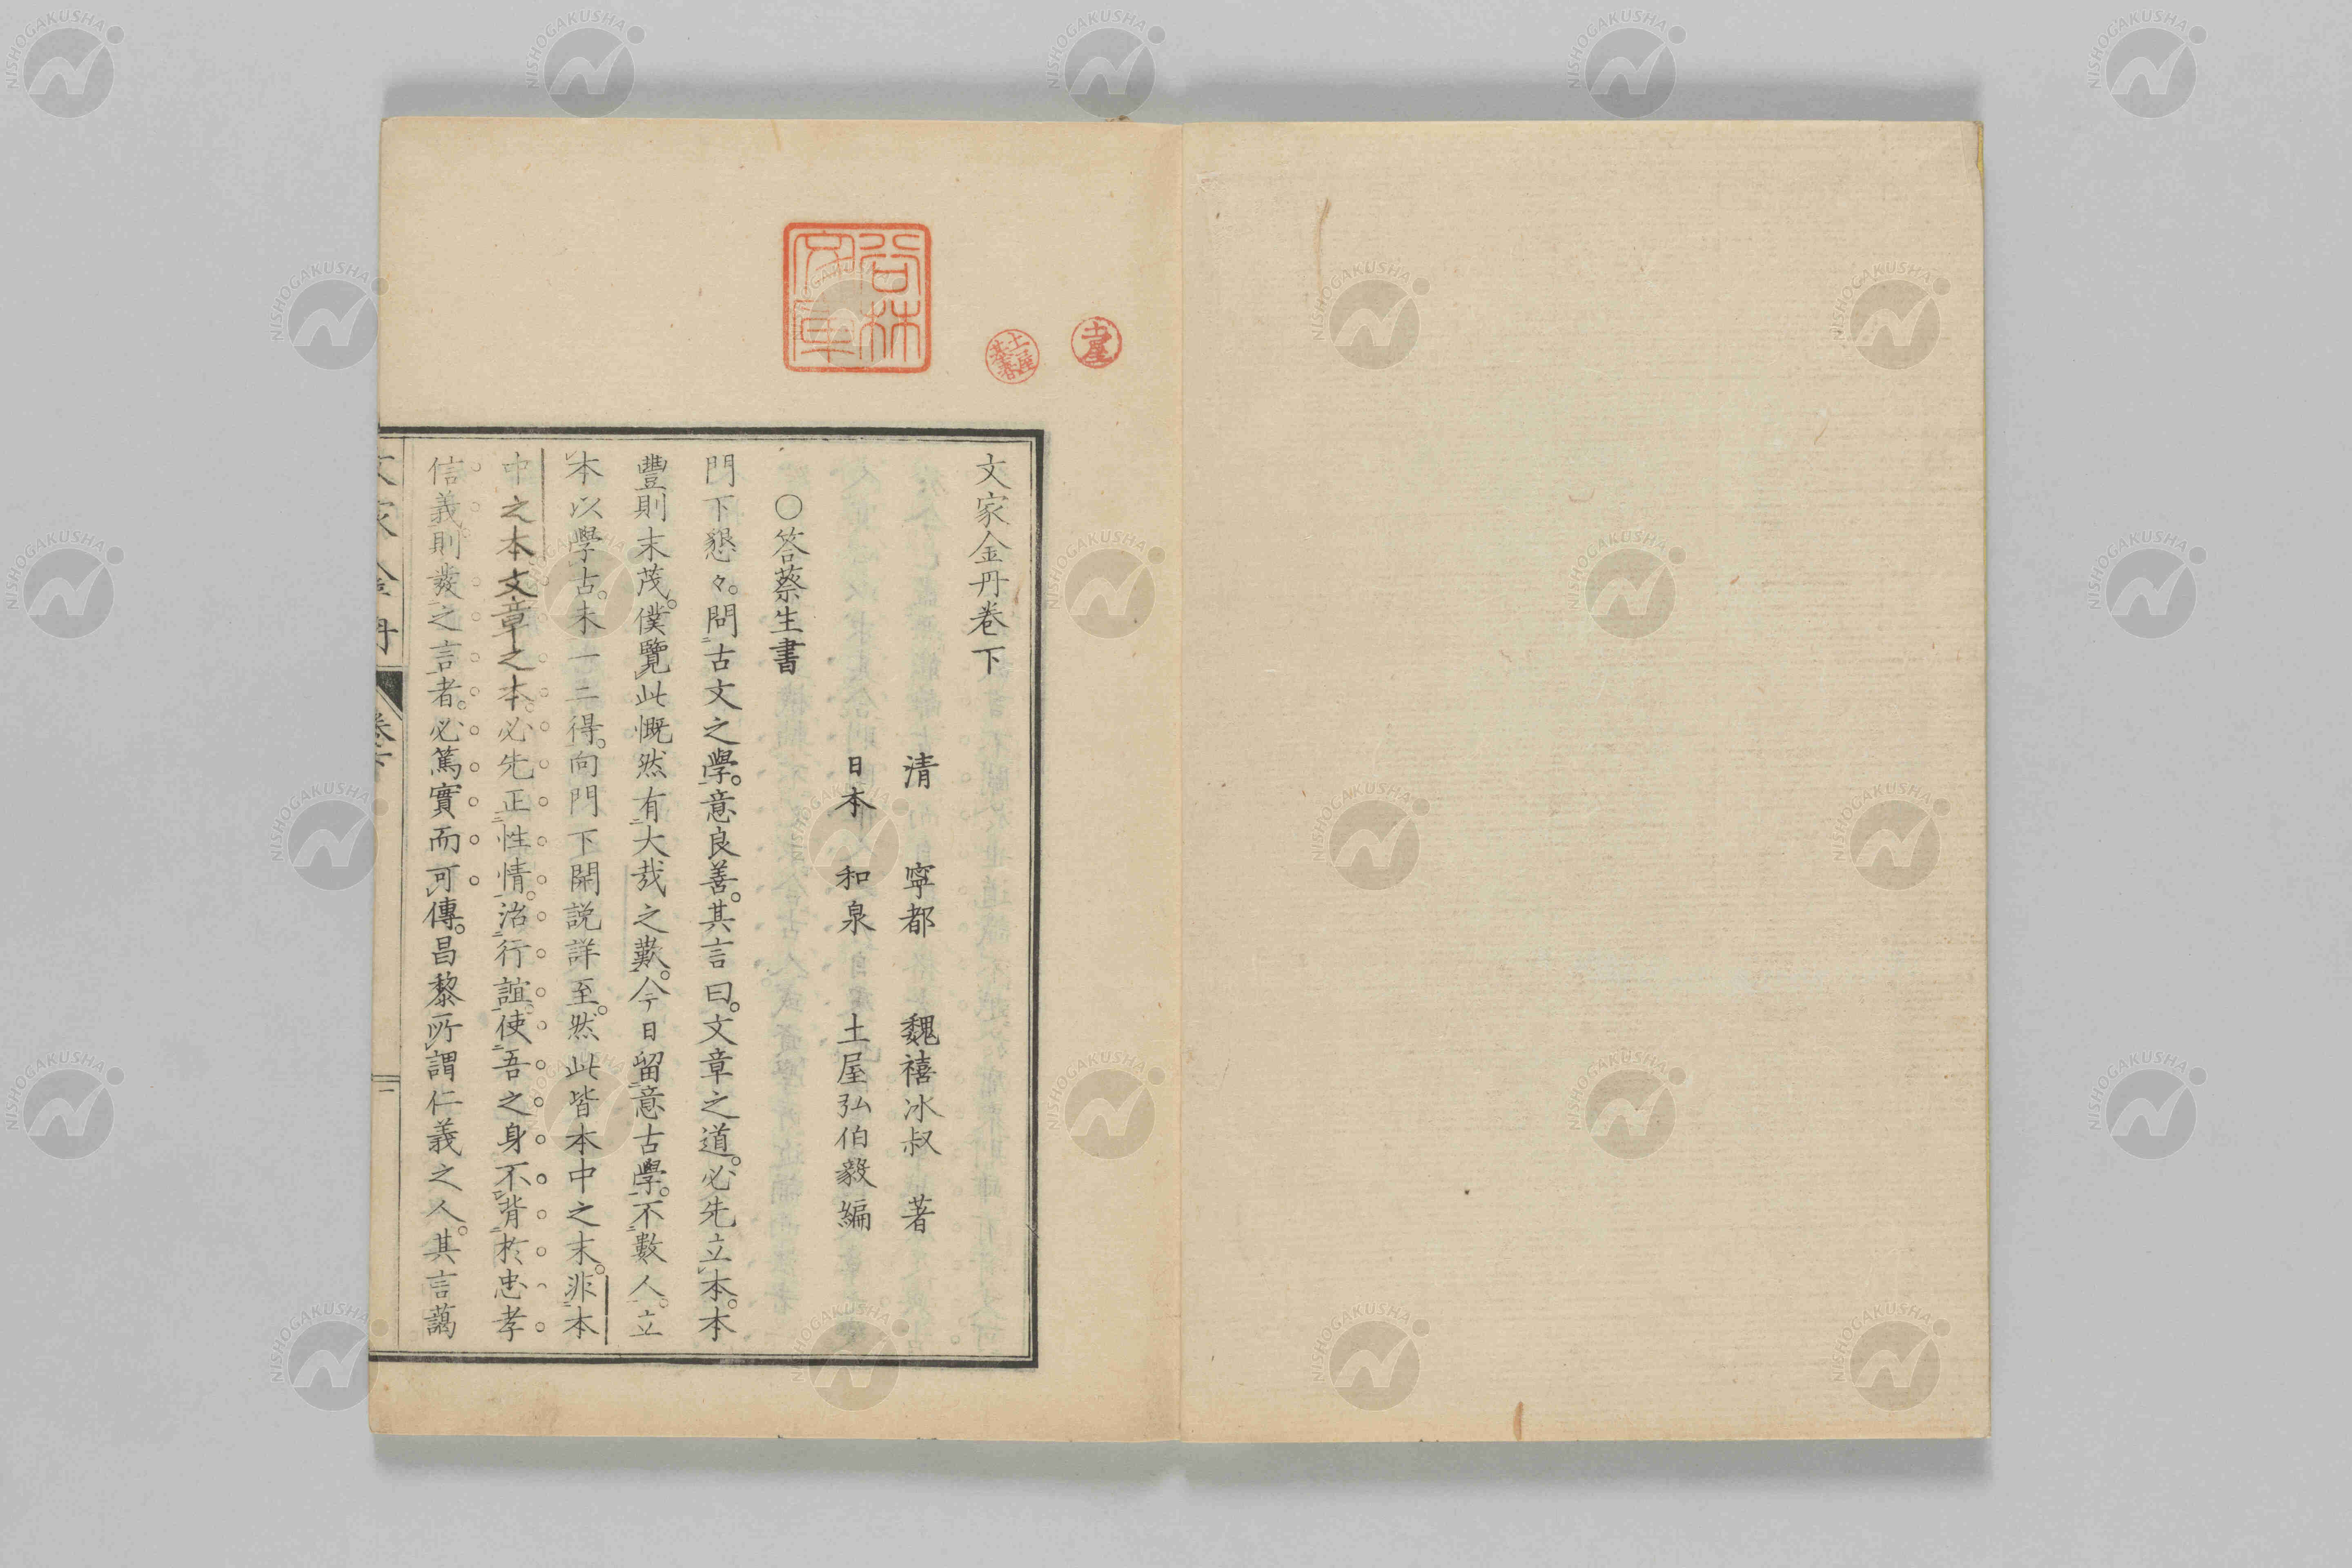 文家金丹巻下
清 寧都 魏禧冰叔 著
日本 和泉 土屋弘伯毅編
○答蔡生書
門下懇々。問古文之學。意良善。其言曰。文章之道。必先立本。本
豐則末茂。僕覽此慨然有大哉之歎。今日留意古學。不數人。立
本以學古。未一二得。向門下開説詳至。然此皆本中之末。非本
中之本。文章之本。必先正性情。治行誼。使吾之身不背於忠孝
信義。則發之言者。必篤實而可傳。昌黎所謂仁義之人。其言藹
文家金丹 卷下 一
谷林文庫
土屋
土屋
NISHOGAKUSHA